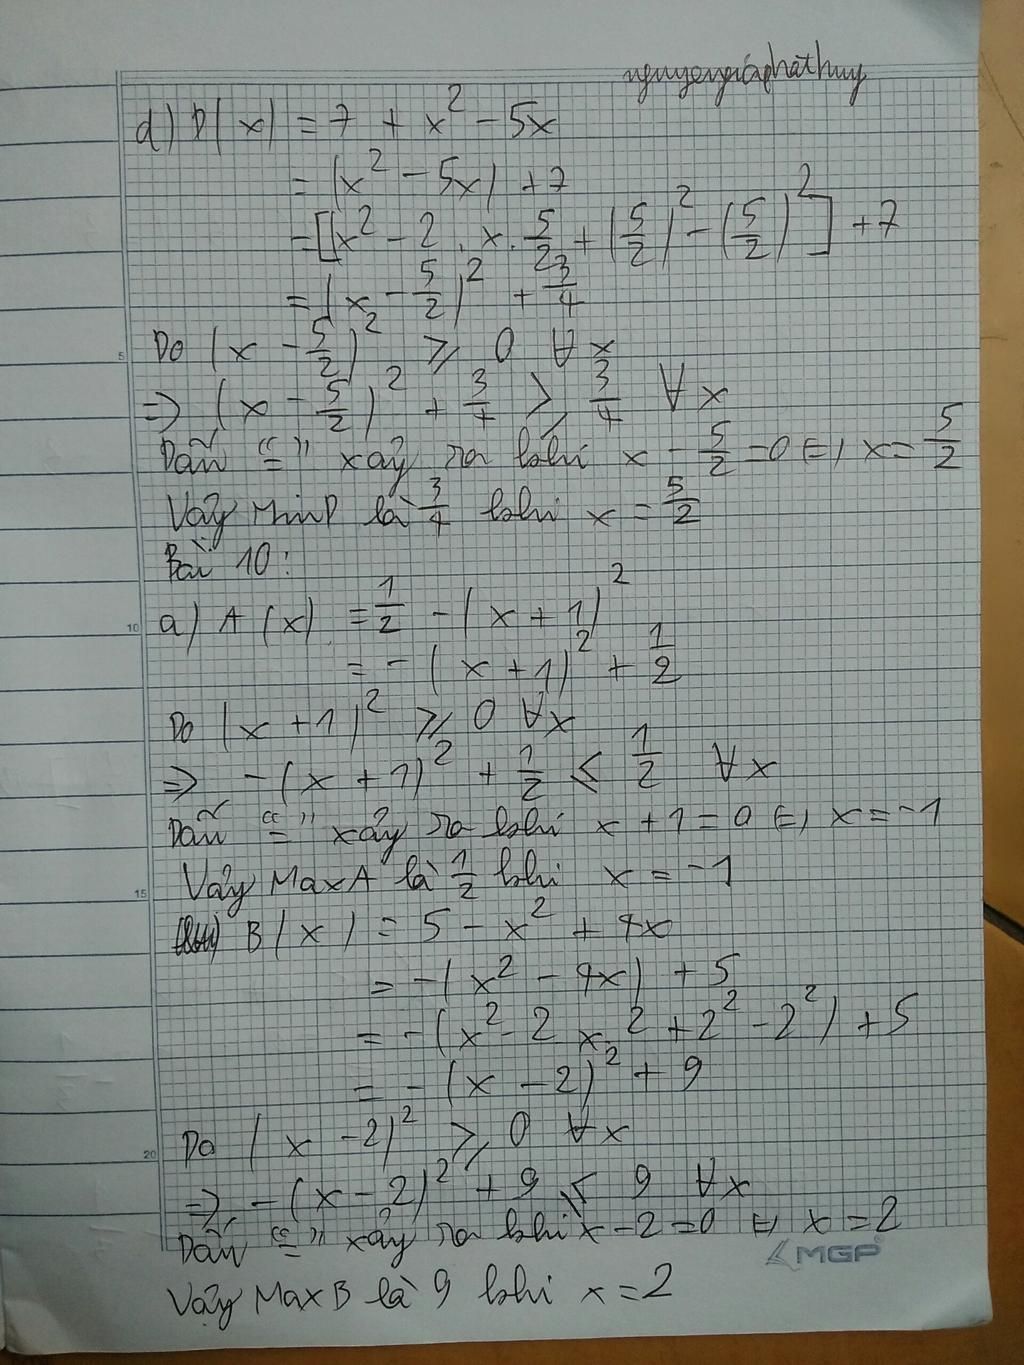 nguyengiaphathuy
d) D(x) = 7 + x² - 5x
= (x² - 5x) + 7
= [(x² - 2 . x . 5/2 + (5/2)² - (5/2)²] + 7
= (x - 5/2)² + 3/4
Do (x - 5/2)² ≥ 0 ∀x
=> (x - 5/2)² + 3/4 ≥ 3/4 ∀x
Dấu "=" xảy ra khi x - 5/2 = 0 <=> x = 5/2
Vậy MinD là 3/4 khi x = 5/2
Bài 10:
a) A(x) = 1/2 - (x + 1)²
= - (x + 1)² + 1/2
Do (x + 1)² ≥ 0 ∀x
=> - (x + 1)² + 1/2 ≤ 1/2 ∀x
Dấu "=" xảy ra khi x + 1 = 0 <=> x = -1
Vậy MaxA là 1/2 khi x = -1
B(x) = 5 - x² + 4x
= - (x² - 4x) + 5
= - (x² - 2 x . 2 + 2² - 2²) + 5
= - (x - 2)² + 9
Do (x - 2)² ≥ 0 ∀x
=> - (x - 2)² + 9 ≤ 9 ∀x
Dấu "=" xảy ra khi x - 2 = 0 <=> x = 2
MGP
Vậy MaxB là 9 khi x = 2
5
10
15
20